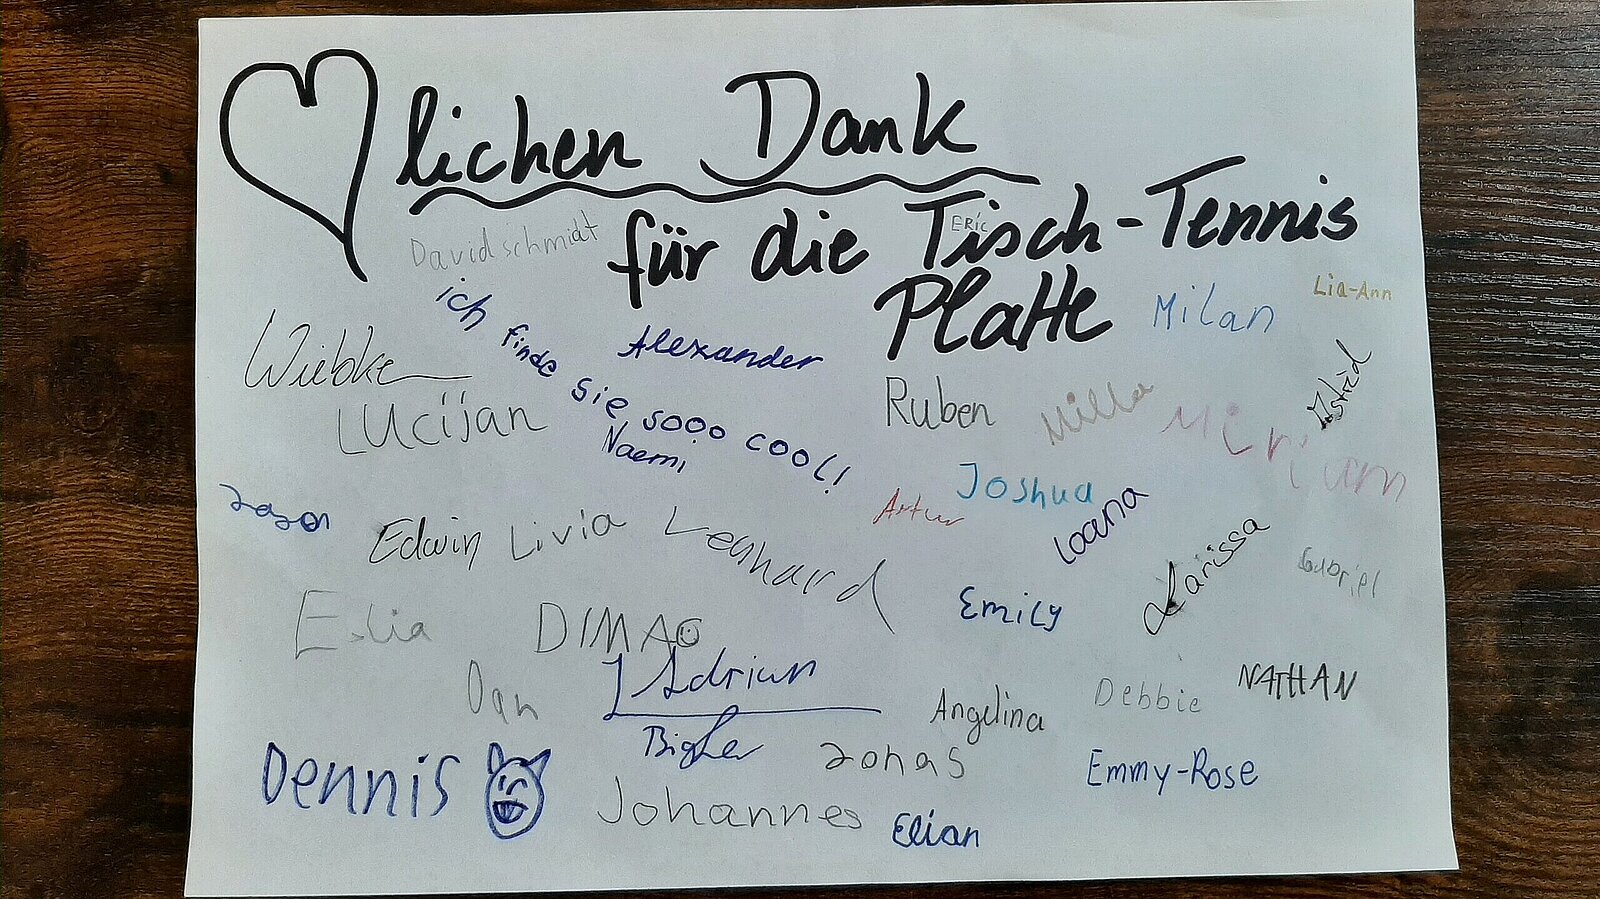 lichen Dank
für die Tisch-Tennis
Platte
David schmidt
ERIC
Lia-Ann
Milan
ich finde sie sooo cool!
Alexander
Wiebke
Astrid
Ruben
Milla
Lucijan
Naemi
Miriam
Joshua
Jason
Artur
Ioana
Edwin
Livia
Lenhard
Larissa
Gabriel
Emily
Elia
DIMA
Adrian
Bigler
Dan
Angelina
Debbie
NATHAN
Dennis
Jonas
Emmy-Rose
Johannes
Elian